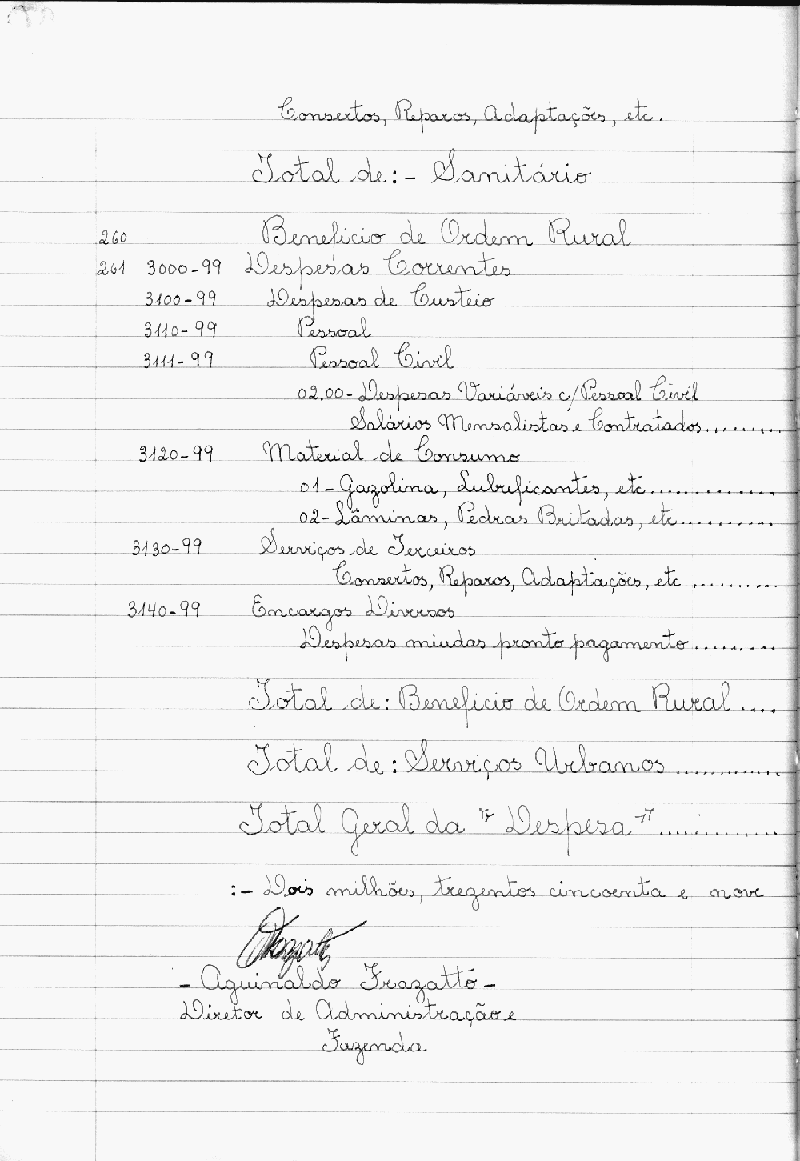 Consertos, Reparos, Adaptações, etc.
Total de:- Sanitário
260 Beneficio de Ordem Rural
261 3000-99 Despesas Correntes
3100-99 Despesas de Custeio
3110-99 Pessoal
3111-99 Pessoal Civil
02.00- Despesas Variáveis c/ Pessoal Civil
Salários Mensalistas e Contratados........
3120-99 Material de Consumo
01- Gazolina, Lubrificantes, etc.............
02- Lâminas, Pedras Britadas, etc..........
3130-99 Serviços de Terceiros
Consertos, Reparos, Adaptações, etc .........
3140-99 Encargos Diversos
Despesas miudas pronto pagamento .........
Total de: Beneficio de Ordem Rural ....
Total de: Serviços Urbanos ...........
Total Geral da "Despesa" ............
:- Dois milhões, trezentos cincoenta e nove
- Aguinaldo Frazatto -
Diretor de Administração e
Fazenda.